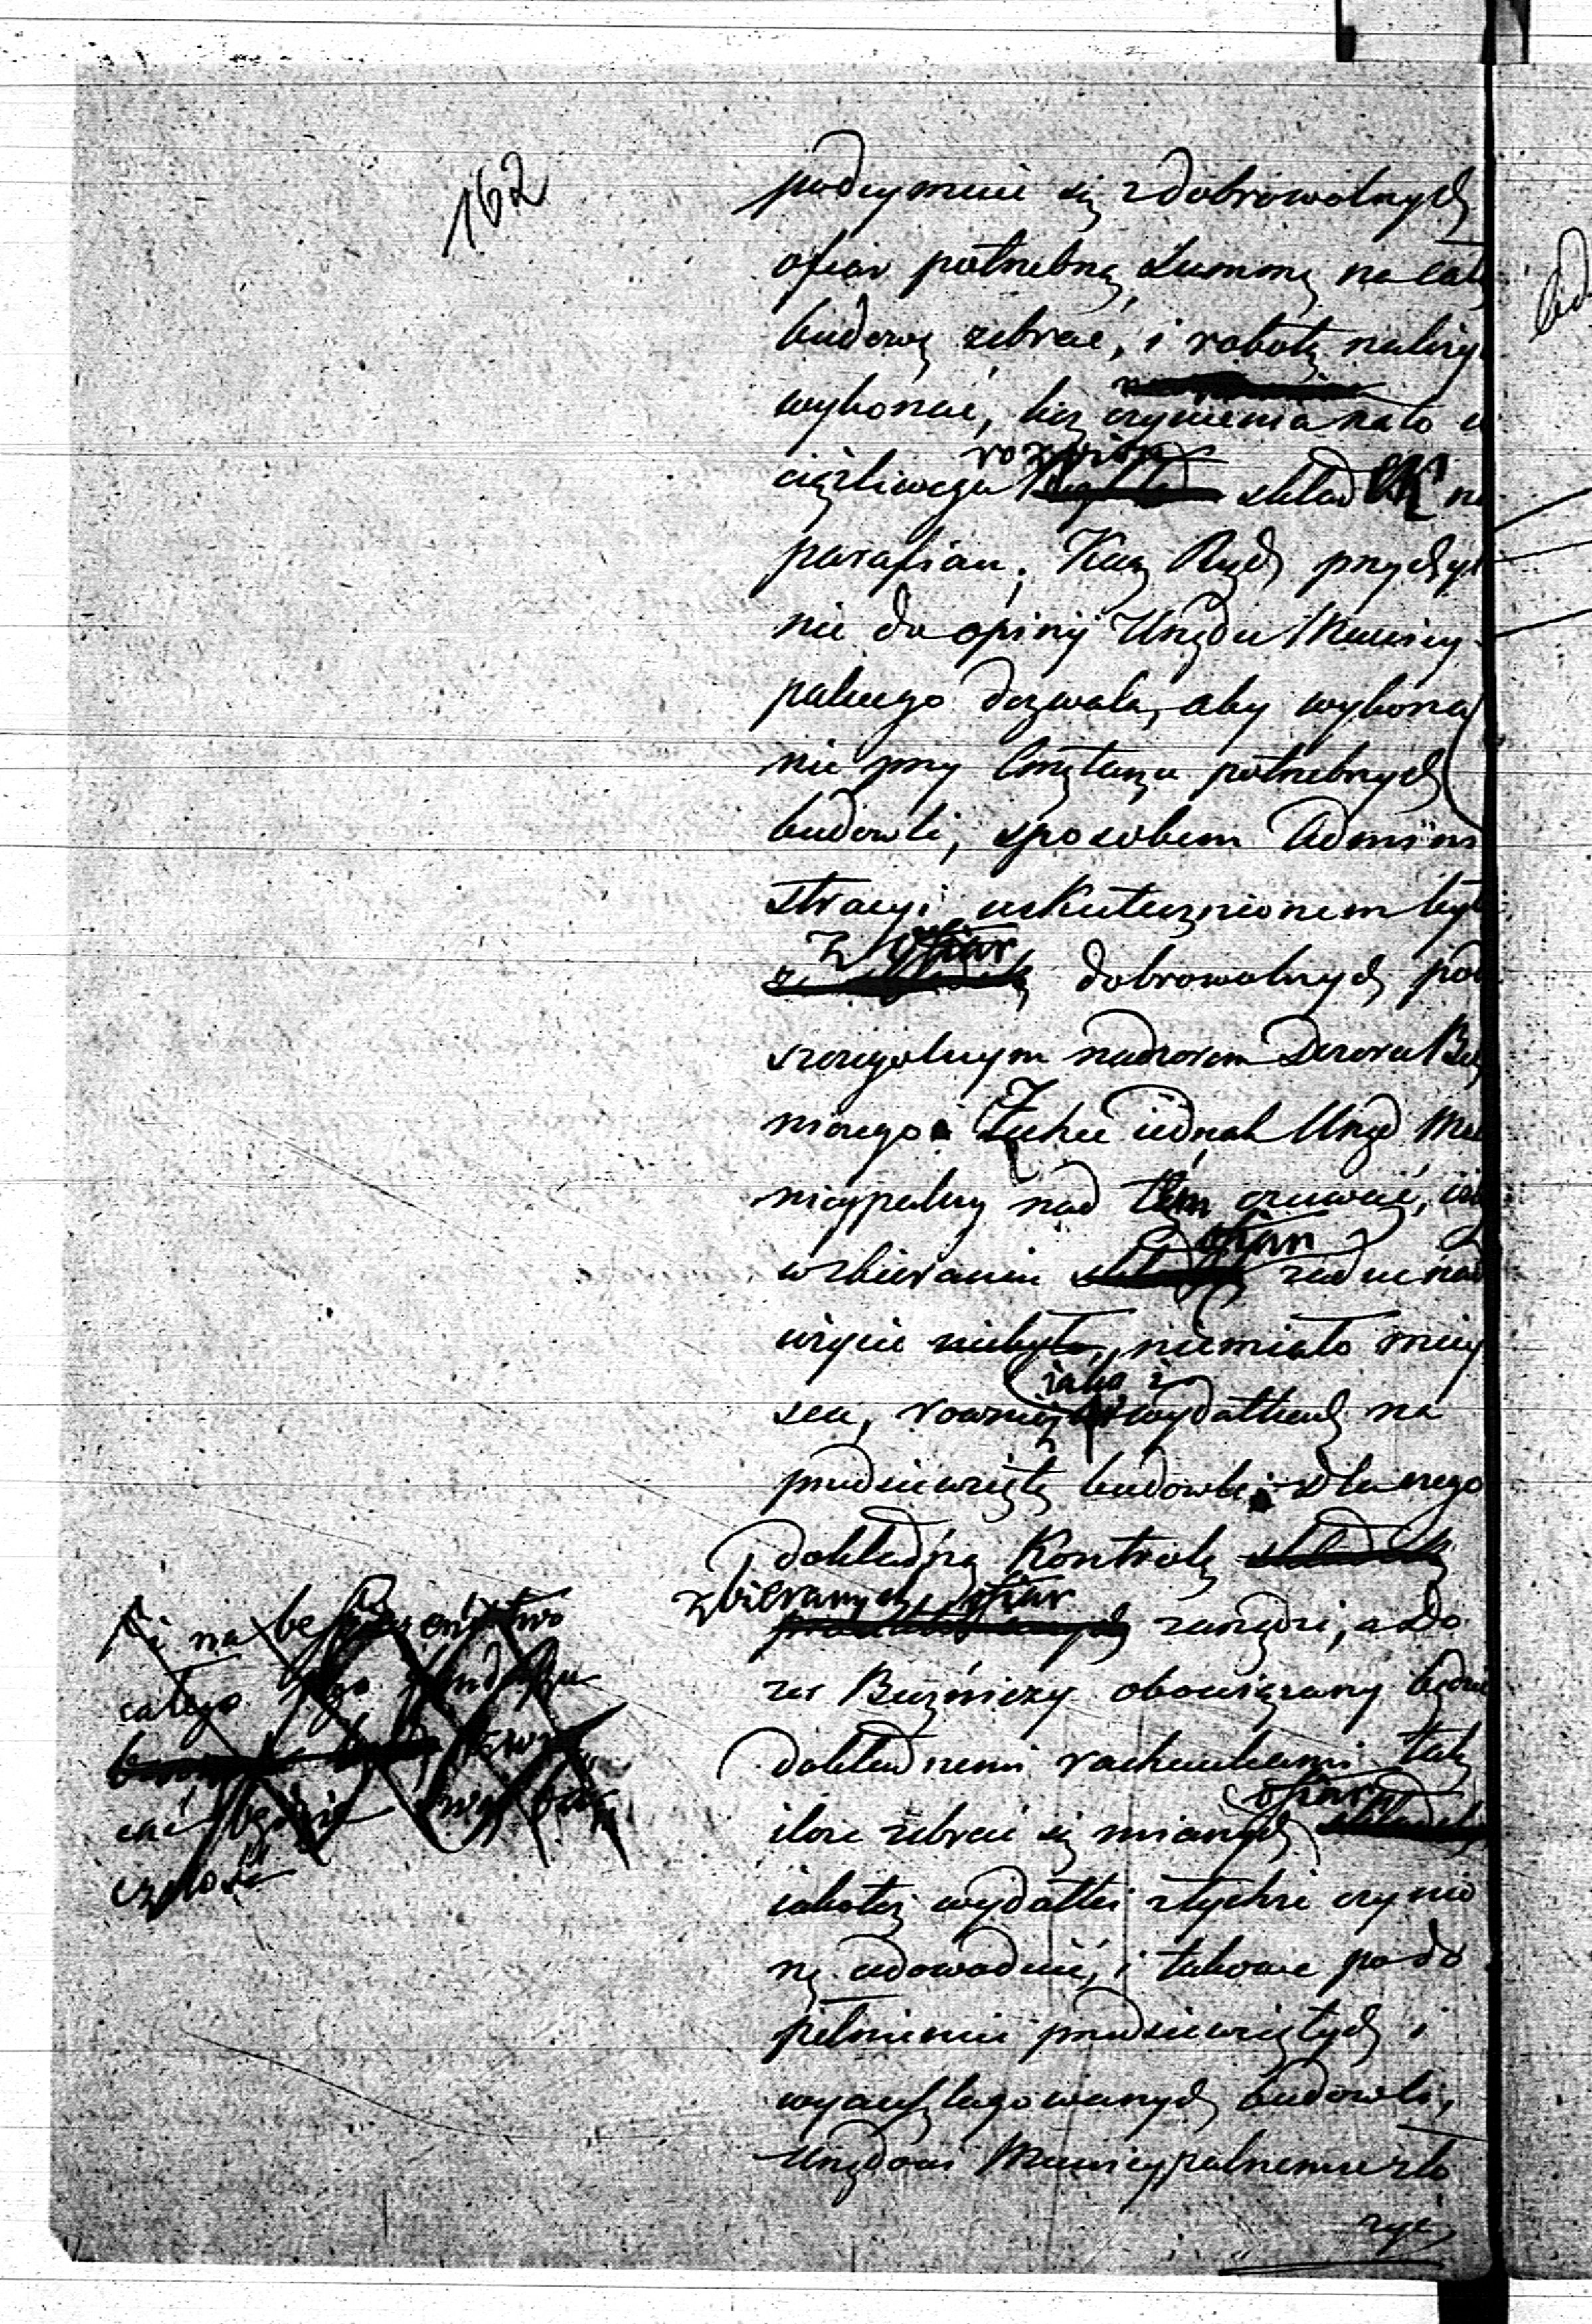 162
podeymuie się z dobrowolnych
ofiar potrzebną Summę na całą
budowę zebrać, i robotę należy
wykonać, bez czynienia na to u
ciążliwego rozpisu składek na
parafian; Kom Rząd przychyl
nie do opinij Urzędu Municy
palnego dozwala, aby wykona
nie przy Cmętarzu potrzebnych
budowli, sposobem Admini
stracyi uskutecznionem było
z ofiar dobrowolnych pod
szczegolnym nadzorem Dozoru Boż
niczego. Zechce iednak Urząd Mu
nicypalny nad tém czuwać, aby
w zbieraniu ofiar żadne nad
użycie niebyło, niemiało miey
sca, rownież iako i w wydatkach na
przedsięwziętą budowlę; dla czego
dokładną Kontrolę składek
zbieranych ofiar zarządzi, a Do
zor Bużniczy obowiązany będzie
dokładnemi rachunkami tak
ilość zebrać się mianych ofiar składek
iakoteż wydatki z tychże czynio
ne udowodnić, i takowe po do
pełnieniu przedsięwziętych i
wyanszlagowanych budowli,
Urzędowi Municypalnemu zło
żyć
i na bespieczeństwo
całego tego funduszu
cać będzie
czność